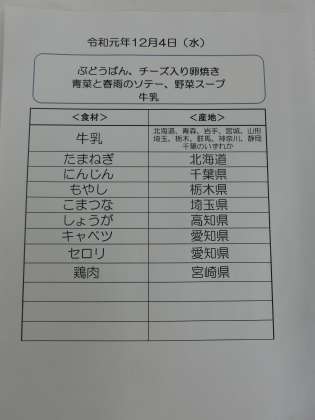 令和元年12月4日（水）
ぶどうぱん、チーズ入り卵焼き
青菜と春雨のソテー、野菜スープ
牛乳
＜食材＞ ＜産地＞
牛乳 北海道、青森、岩手、宮城、山形
埼玉、栃木、群馬、神奈川、静岡
千葉のいずれか
たまねぎ 北海道
にんじん 千葉県
もやし 栃木県
こまつな 埼玉県
しょうが 高知県
キャベツ 愛知県
セロリ 愛知県
鶏肉 宮崎県